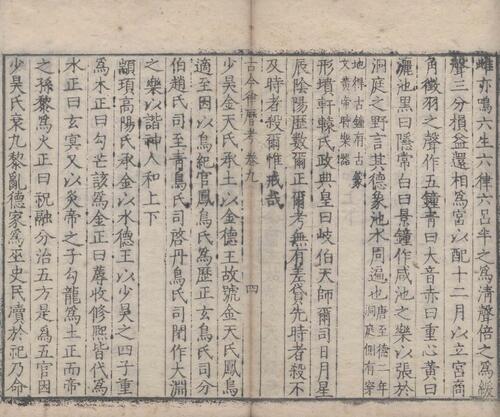 雌亦鳴六生六律六呂半之為清聲倍之為緩
聲三分損益還相為宮以配十二月以立宮商
角徵羽之聲作五鐘青曰大音赤曰重心黃曰
灑池黑曰隱常白曰景鐘作咸池之樂以張於
洞庭之野言其德象池水周遍也唐至德二年洞庭側有穿
地得古鐘有古篆文黃帝時樂器
形墳軒轅氏政典皇曰岐伯天師爾司日月星
辰陰陽歷數爾正爾考無有差貸先時者殺不
及時者殺爾惟戒哉
古今律歷考卷九 四
少昊金天氏承土以金德王故號金天氏鳳鳥
適至因以鳥紀官鳳鳥氏為歷正玄鳥氏司分
伯趙氏司至青鳥氏司啓丹鳥氏司閉作大淵
之樂以諧神人和上下
顓頊高陽氏承金以水德王以少昊之四子重
為木正曰勾芒該為金正曰蓐收修熙皆代為
水正曰玄冥又以炎帝之子勾龍為土正而帝
之孫黎為火正曰祝融分治五方是為五官因
少昊氏衰九黎亂德家為巫史民瀆於祀乃命